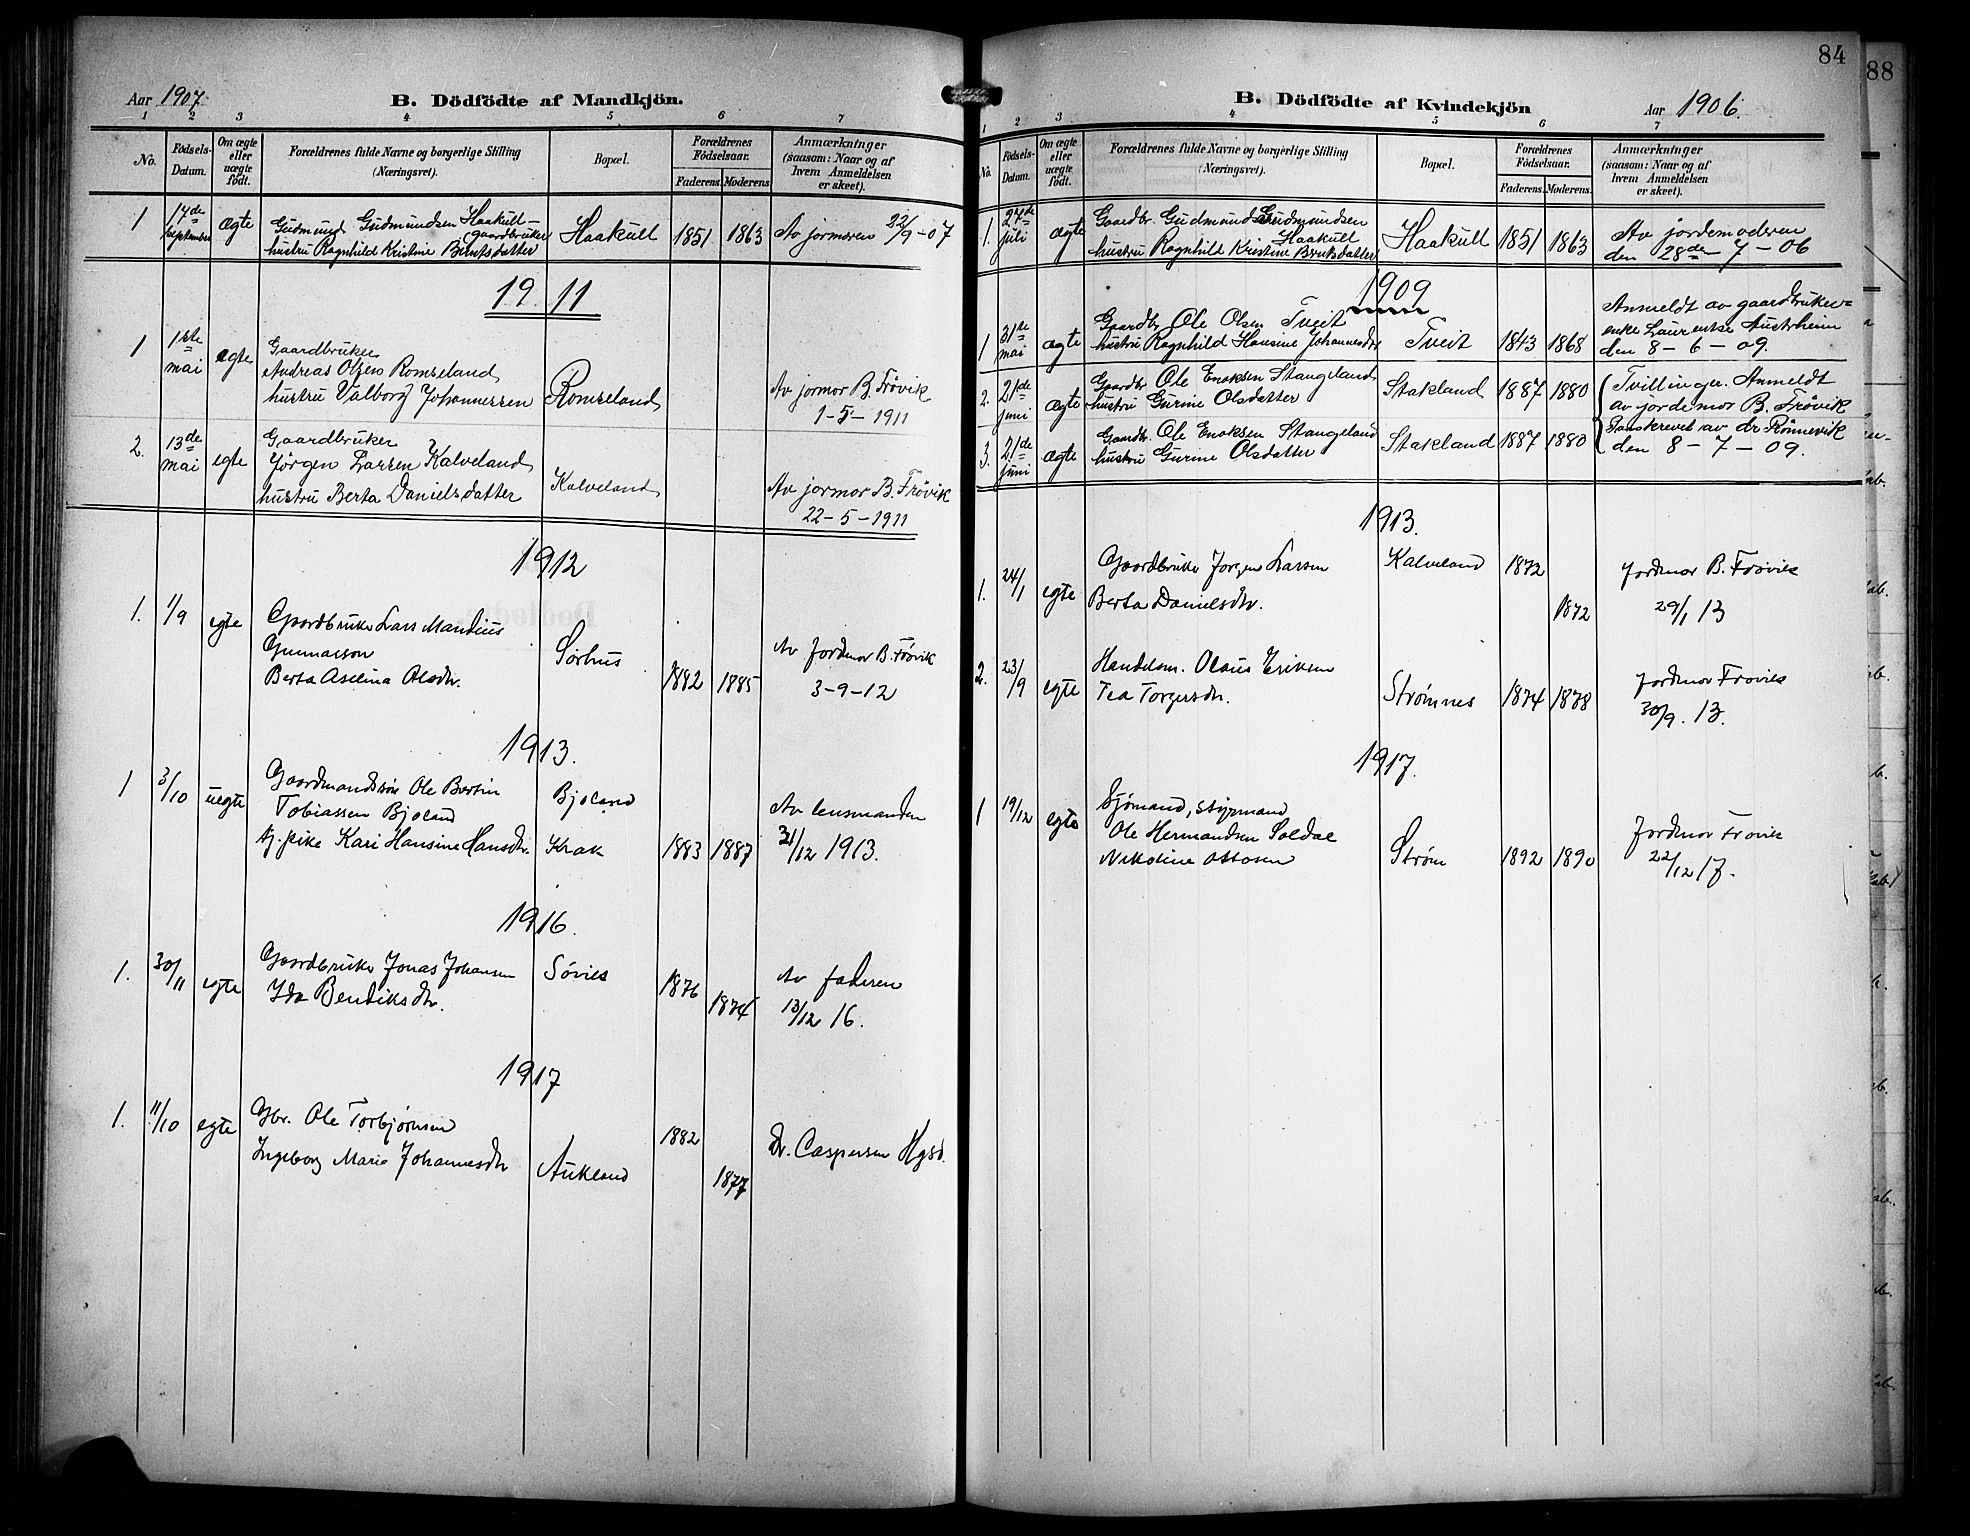 Aar 1907.
B. Dödfödte af Mandkjön.
1 2 3 4 5 6 7
No.
Födsels-
Datum.
Om ægte
eller
uægte
födt.
Forældrenes fulde Navne og borgerlige Stilling
(Næringsvei).
Bopæl.
Forældrenes
Födselsaar.
Faderens. Moderens.
Anmærkninger
(saasom: Naar og af
hvem Anmeldelsen
er skeet).
1 17de september ægte
Gudmund Gudmundsen Haakull -
gaardbruker
hustru Ragnhild Kristine Bentsdatter
Haakull 1851 1863 Av jormoren 22/9 - 07
19 11
1 1ste mai ægte
Gaardbruker
Andreas Olsen Romseland
hustru Valborg Johannessen
Romseland
Av jormor B. Frøvik
1-5-1911
2. 13de mai egte
Gaardbruker
Jørgen Larsen Kalveland
hustru Berta Danielsdatter
Kalveland
Av jormor B. Frøvik
22-5-1911
1912
1. 1/9 egte
Gaardbruker Lars Mandius
Gunnarson
Berta Aselina Olsdtr.
Sørhus 1882 1885
Av Jordmor B. Frøvik
3-9-12
1913.
1 3/10 uegte
Gaardmandssøn Ole Bertin
Tobiassen Bjoland
Gj. pike Karì Hansine Hansdtr.
Bjoland
Krak 1883 1887
Av lensmanden
31/12 1913.
1916.
1. 30/11 egte
Gaardbruker Jonas Johansen
Ida Bendiksdtr.
Søvik 1876 1874
Av faderen
13/12 16.
1917
1. 11/10 egte
Gbr. Ole Torbjørnsen
Ingeborg Marie Johannesdtr
Aukland 1882 1877
Dr. Caspersen Hgsd.
84
88
B. Dödfödte af Kvindekjön
Aar 1906.
1 2 3 4 5 6 7
No.
Födsels-
Datum.
Om ægte
eller
uægte
födt.
Forældrenes fulde Navne og borgerlige Stilling
(Næringsvei).
Bopæl.
Forældrenes
Födselsaar.
Faderens. Moderens.
Anmærkninger
(saasom: Naar og af
hvem Anmeldelsen
er skeet).
1. 27de juli ægte
Gaardbr. Gudmund Gudmundsen
Haakull
hustru Ragnhild Kristine Bentsdatter
Haakull 1851 1863
Av jordemoderen
den 28de - 7 - 06
1909
1 31te mai ægte
Gaardbr Ole Olsen Tveit
hustru Ragnhild Hansine Johannesdtr
Tveit 1843 1868
Anmeldt av gaardbruker=
enke Laurentse Austrheim
den 8 - 6 - 09.
2. 21de juni ægte
Gaardbr Ole Enoksen Stangeland
hustru Gurine Olsdatter
Stakland 1887 1880
Tvillinger. Anmeldt
av jordemor B. Frøvik
3. 21de juni ægte
Gaardbr. Ole Enoksen Stangeland
hustru Gurine Olsdatter
Stakland 1887 1880
av dr Rönnevik
den 8 - 7 - 09.
1913.
1. 24/1 egte
Gaardbruker Jørgen Larsen
Berta Danielsdtr.
Kalveland 1872 1872
Jordmor B. Frøvik
29/1 13
2. 23/9 egte
Handelsm. Olaus Eriksen
Tea Torgersdtr.
Strømnes 1874 1878
Jordmor Frøvik
30/9. 13.
1917.
1 19/12 egte
Sjømand, styrmand
Ole Hermandsen Soldal
Nikoline Ottosen
Strøm 1892 1890
Jordmor Frøvik
22/12 17.